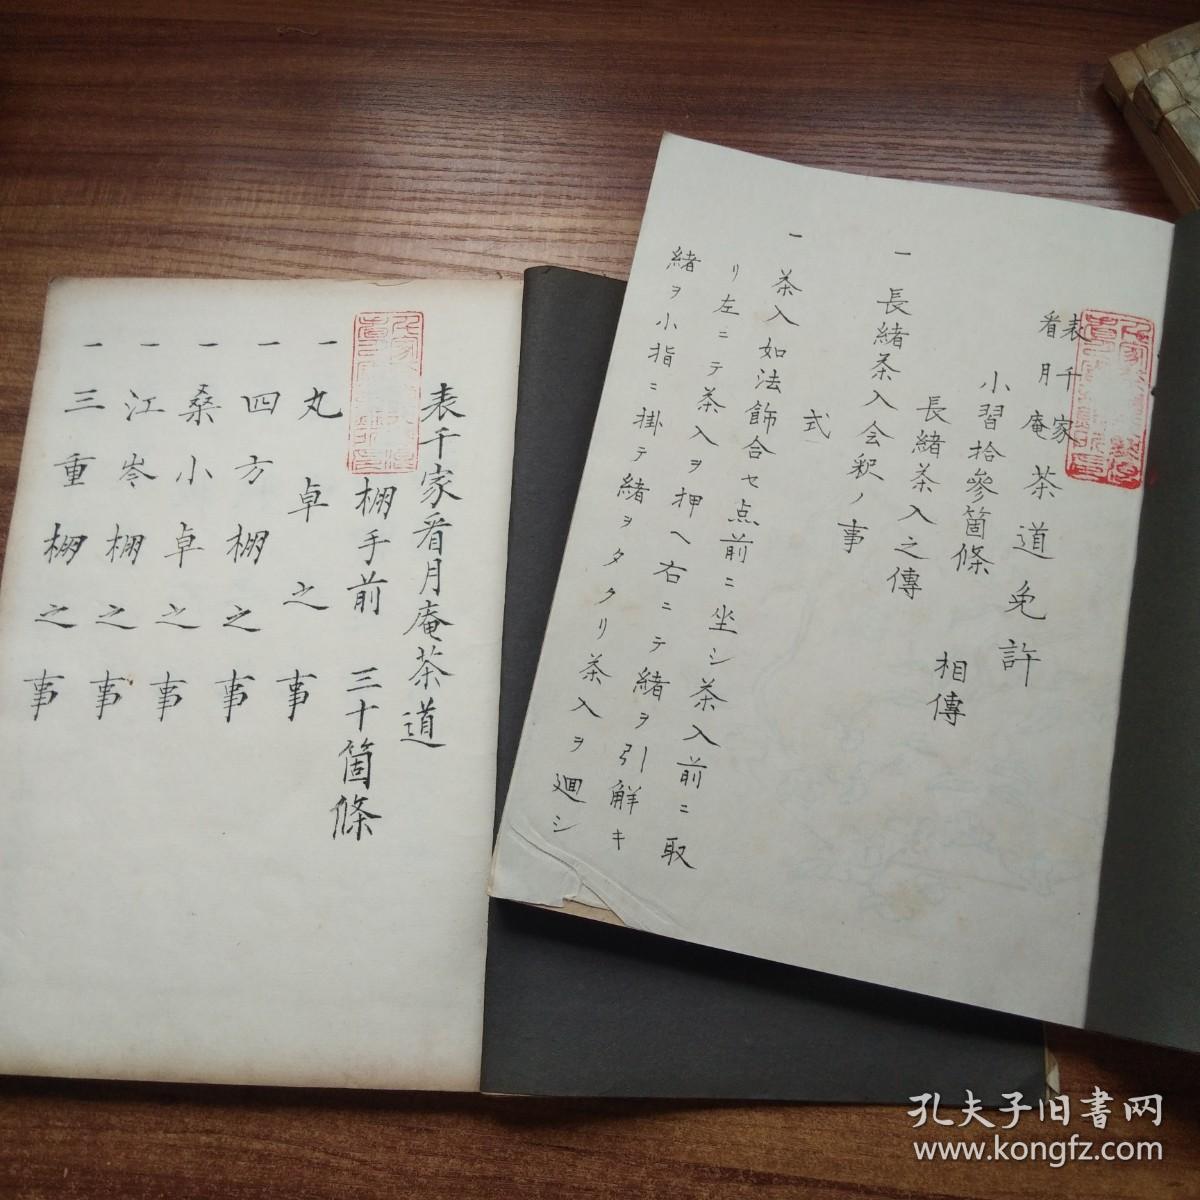 表千家
看月庵
茶道免許
小習拾參箇條
相傳
長緒茶入之傳
一 長緒茶入会釈ノ事
式
一 茶入如法飾合セ点前ニ坐シ茶入前ニ取
リ左ニテ茶入ヲ押ヘ右ニテ緒ヲ引解キ
緒ヲ小指ニ掛テ緒ヲタクリ茶入ヲ廻シ
表千家看月庵茶道
棚手前 三十箇條
一 丸卓之事
一 四方棚之事
一 桑小卓之事
一 江岑棚之事
一 三重棚之事
孔夫子旧书网
www.kongfz.com